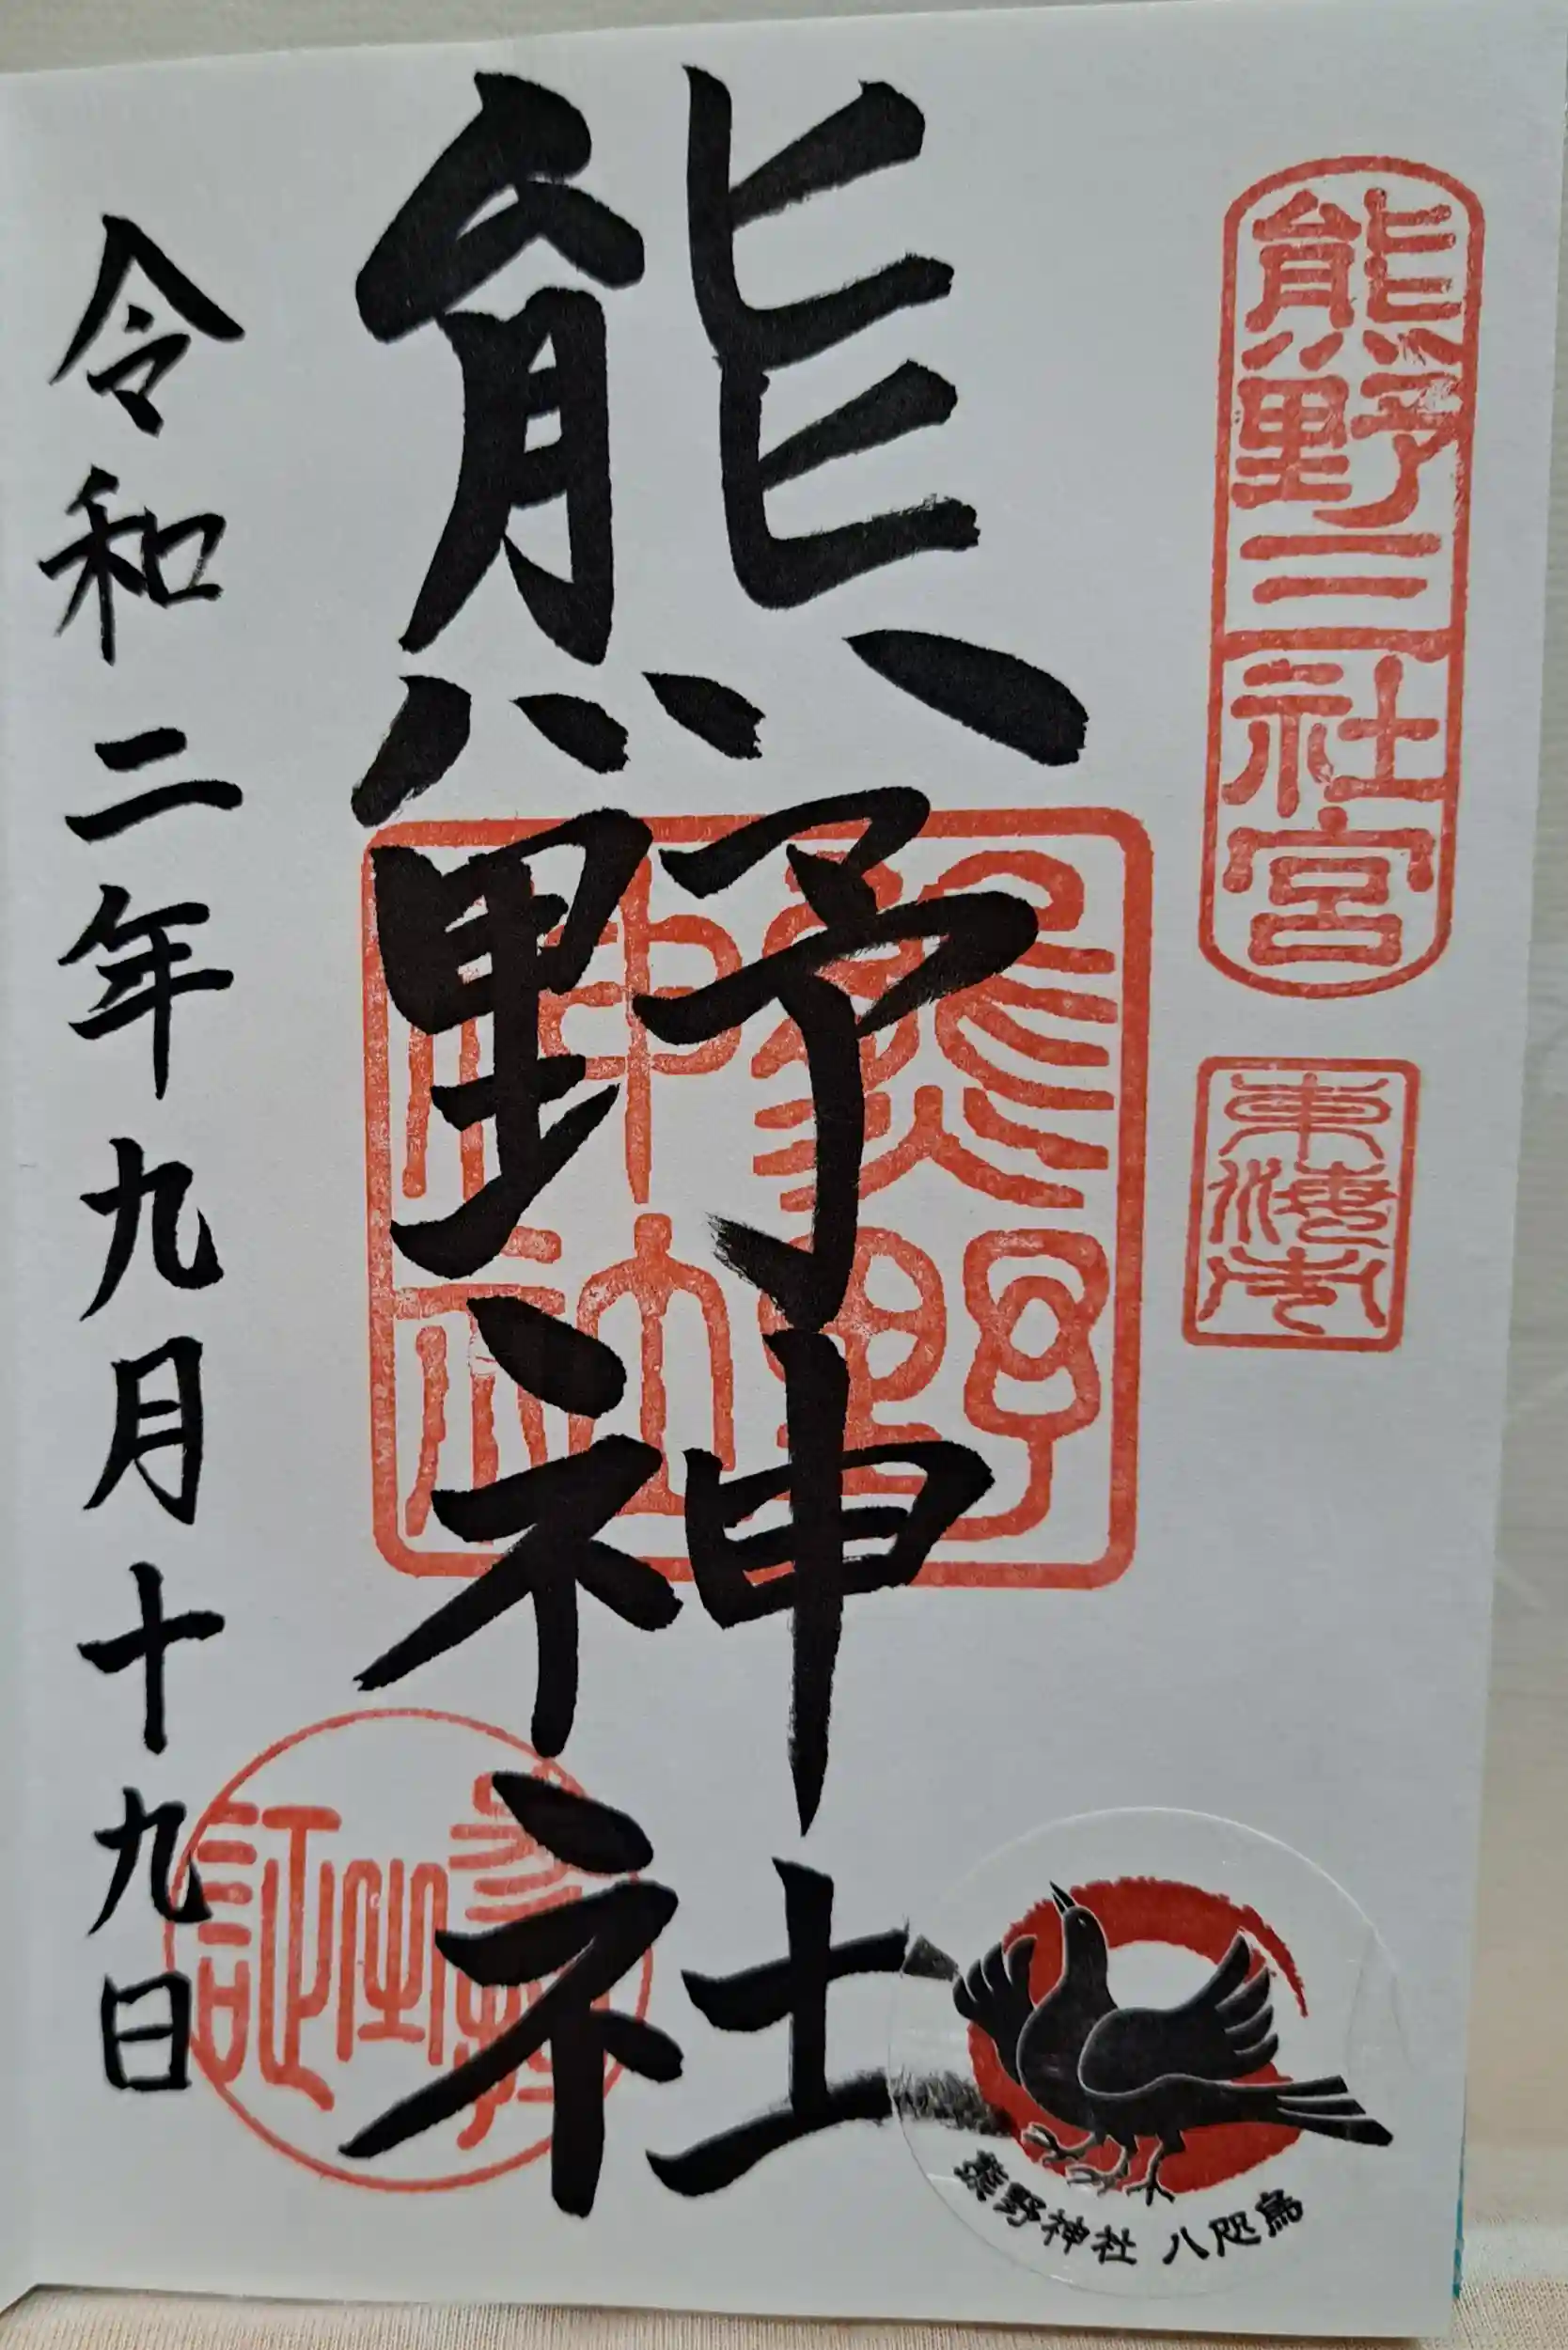 熊野三社宮
東海市
熊野神社
熊野
神社
参拝
之
証
令和二年九月十九日
熊野神社 八咫烏